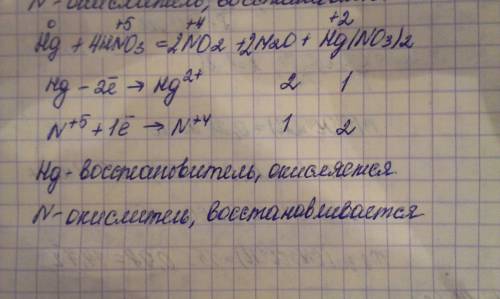 N-окислитель, восстанавли
0 +5 +4 +2
Hg + 4HNO3 = 2NO2 + 2H2O + Hg(NO3)2
Hg - 2ē → Hg2+ 2 1
N+5 + 1ē → N+4 1 2
Hg-восстановитель, окисляется.
N-окислитель, восстанавливается